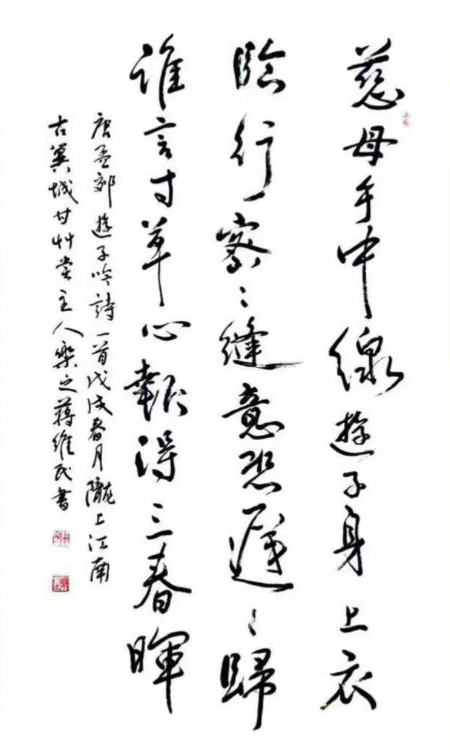 慈母手中線遊子身上衣
臨行密〻縫意恐遲〻歸
誰言寸草心報得三春暉
唐孟郊遊子吟詩一首戊戌春月隴上江南
古冀城甘草堂主人樂之蔣維民書